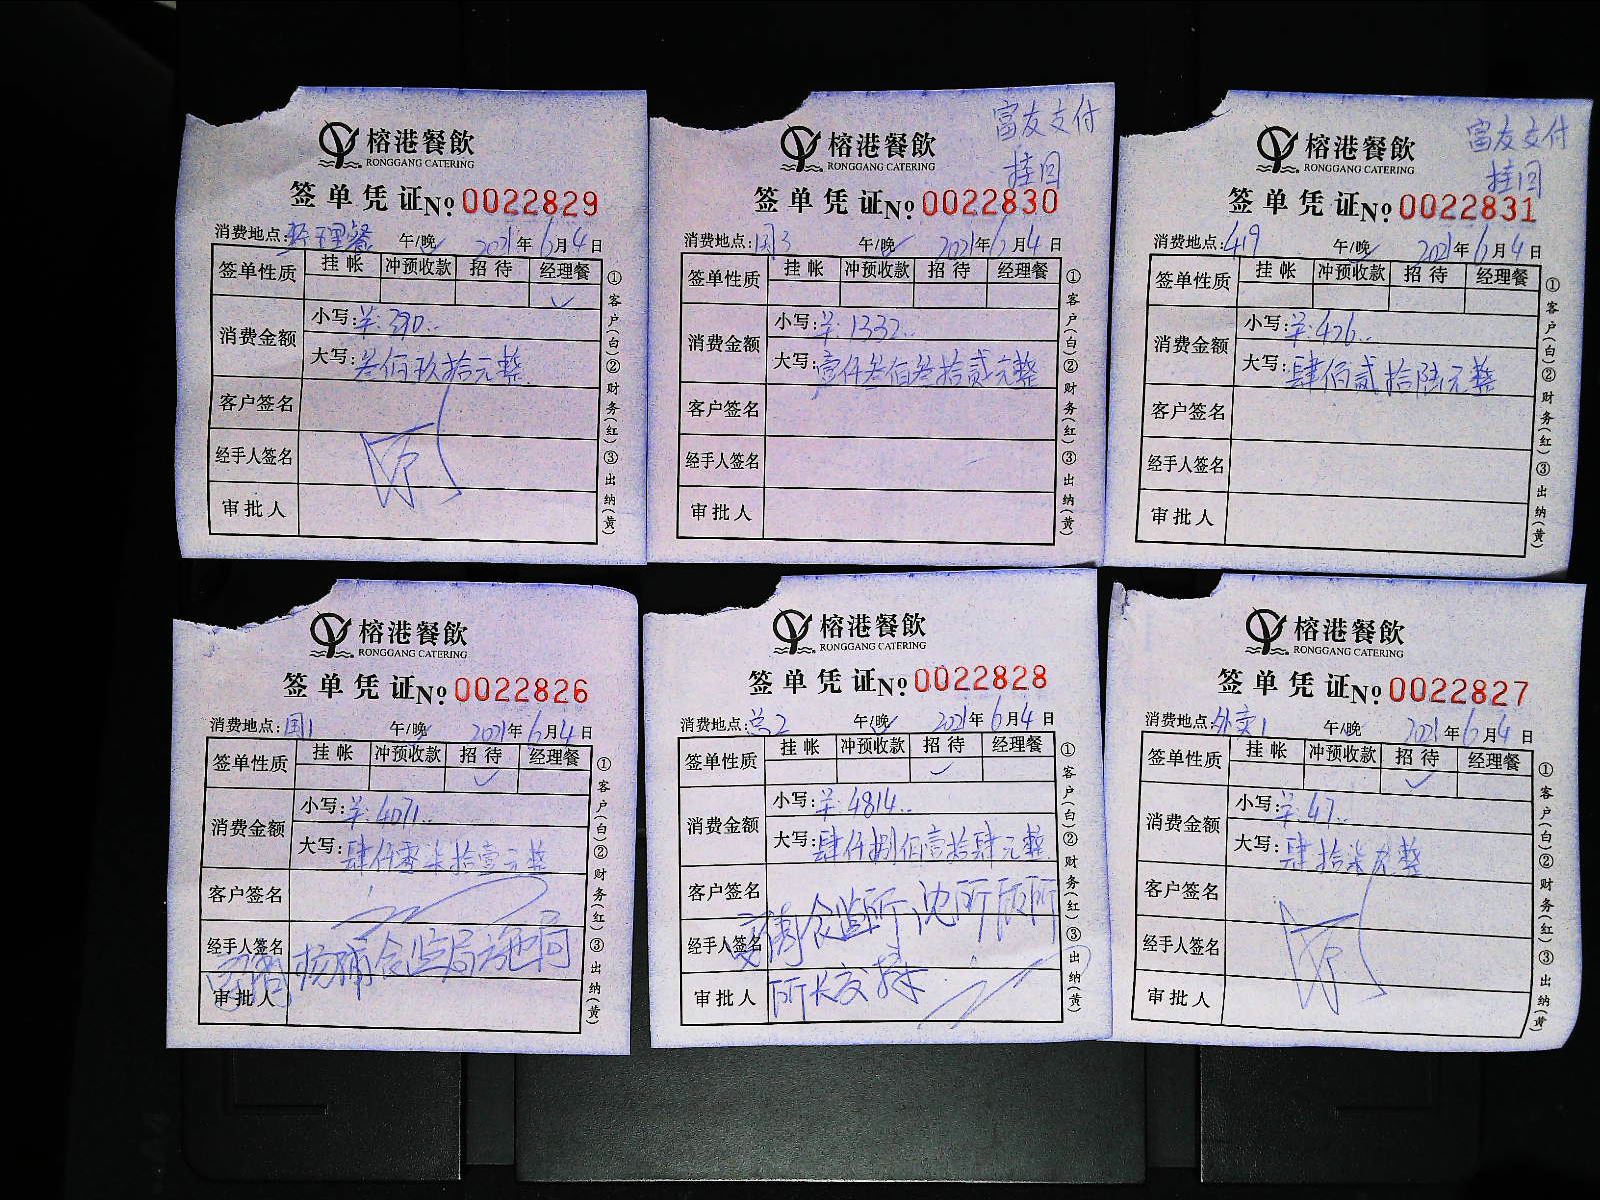 榕港餐飲
RONGGANG CATERING
签单凭证№ 0022829
消费地点:经理餐 午/晚 2021年6月4日
签单性质 挂帐 冲预收款 招待 经理餐
✓
消费金额
小写:羊:390..
大写:叁佰玖拾元整
客户签名
经手人签名
审批人
①客户(白)②财务(红)③出纳(黄)
富友支付
挂回
榕港餐飲
RONGGANG CATERING
签单凭证№ 0022830
消费地点:国3 午/晚 2021年6月4日
签单性质 挂帐 冲预收款 招待 经理餐
消费金额
小写:羊:1332..
大写:壹仟叁佰叁拾贰元整
客户签名
经手人签名
审批人
①客户(白)②财务(红)③出纳(黄)
富友支付
挂回
榕港餐飲
RONGGANG CATERING
签单凭证№ 0022831
消费地点:419 午/晚 2021年6月4日
签单性质 挂帐 冲预收款 招待 经理餐
消费金额
小写:羊:426..
大写:肆佰贰拾陆元整
客户签名
经手人签名
审批人
①客户(白)②财务(红)③出纳(黄)
榕港餐飲
RONGGANG CATERING
签单凭证№ 0022826
消费地点:国1 午/晚 2021年6月4日
签单性质 挂帐 冲预收款 招待 经理餐
✓
消费金额
小写:羊:4071..
大写:肆仟零柒拾壹元整
客户签名
经手人签名
食监局
审批人
①客户(白)②财务(红)③出纳(黄)
榕港餐飲
RONGGANG CATERING
签单凭证№ 0022828
消费地点:总2 午/晚 2021年6月4日
签单性质 挂帐 冲预收款 招待 经理餐
✓
消费金额
小写:羊:4814..
大写:肆仟捌佰壹拾肆元整
客户签名
经手人签名
食监所 沈所顾所
审批人
所长安排
①客户(白)②财务(红)③出纳(黄)
榕港餐飲
RONGGANG CATERING
签单凭证№ 0022827
消费地点:外卖1 午/晚 2021年6月4日
签单性质 挂帐 冲预收款 招待 经理餐
✓
消费金额
小写:羊:47..
大写:肆拾柒元整
客户签名
经手人签名
审批人
①客户(白)②财务(红)③出纳(黄)